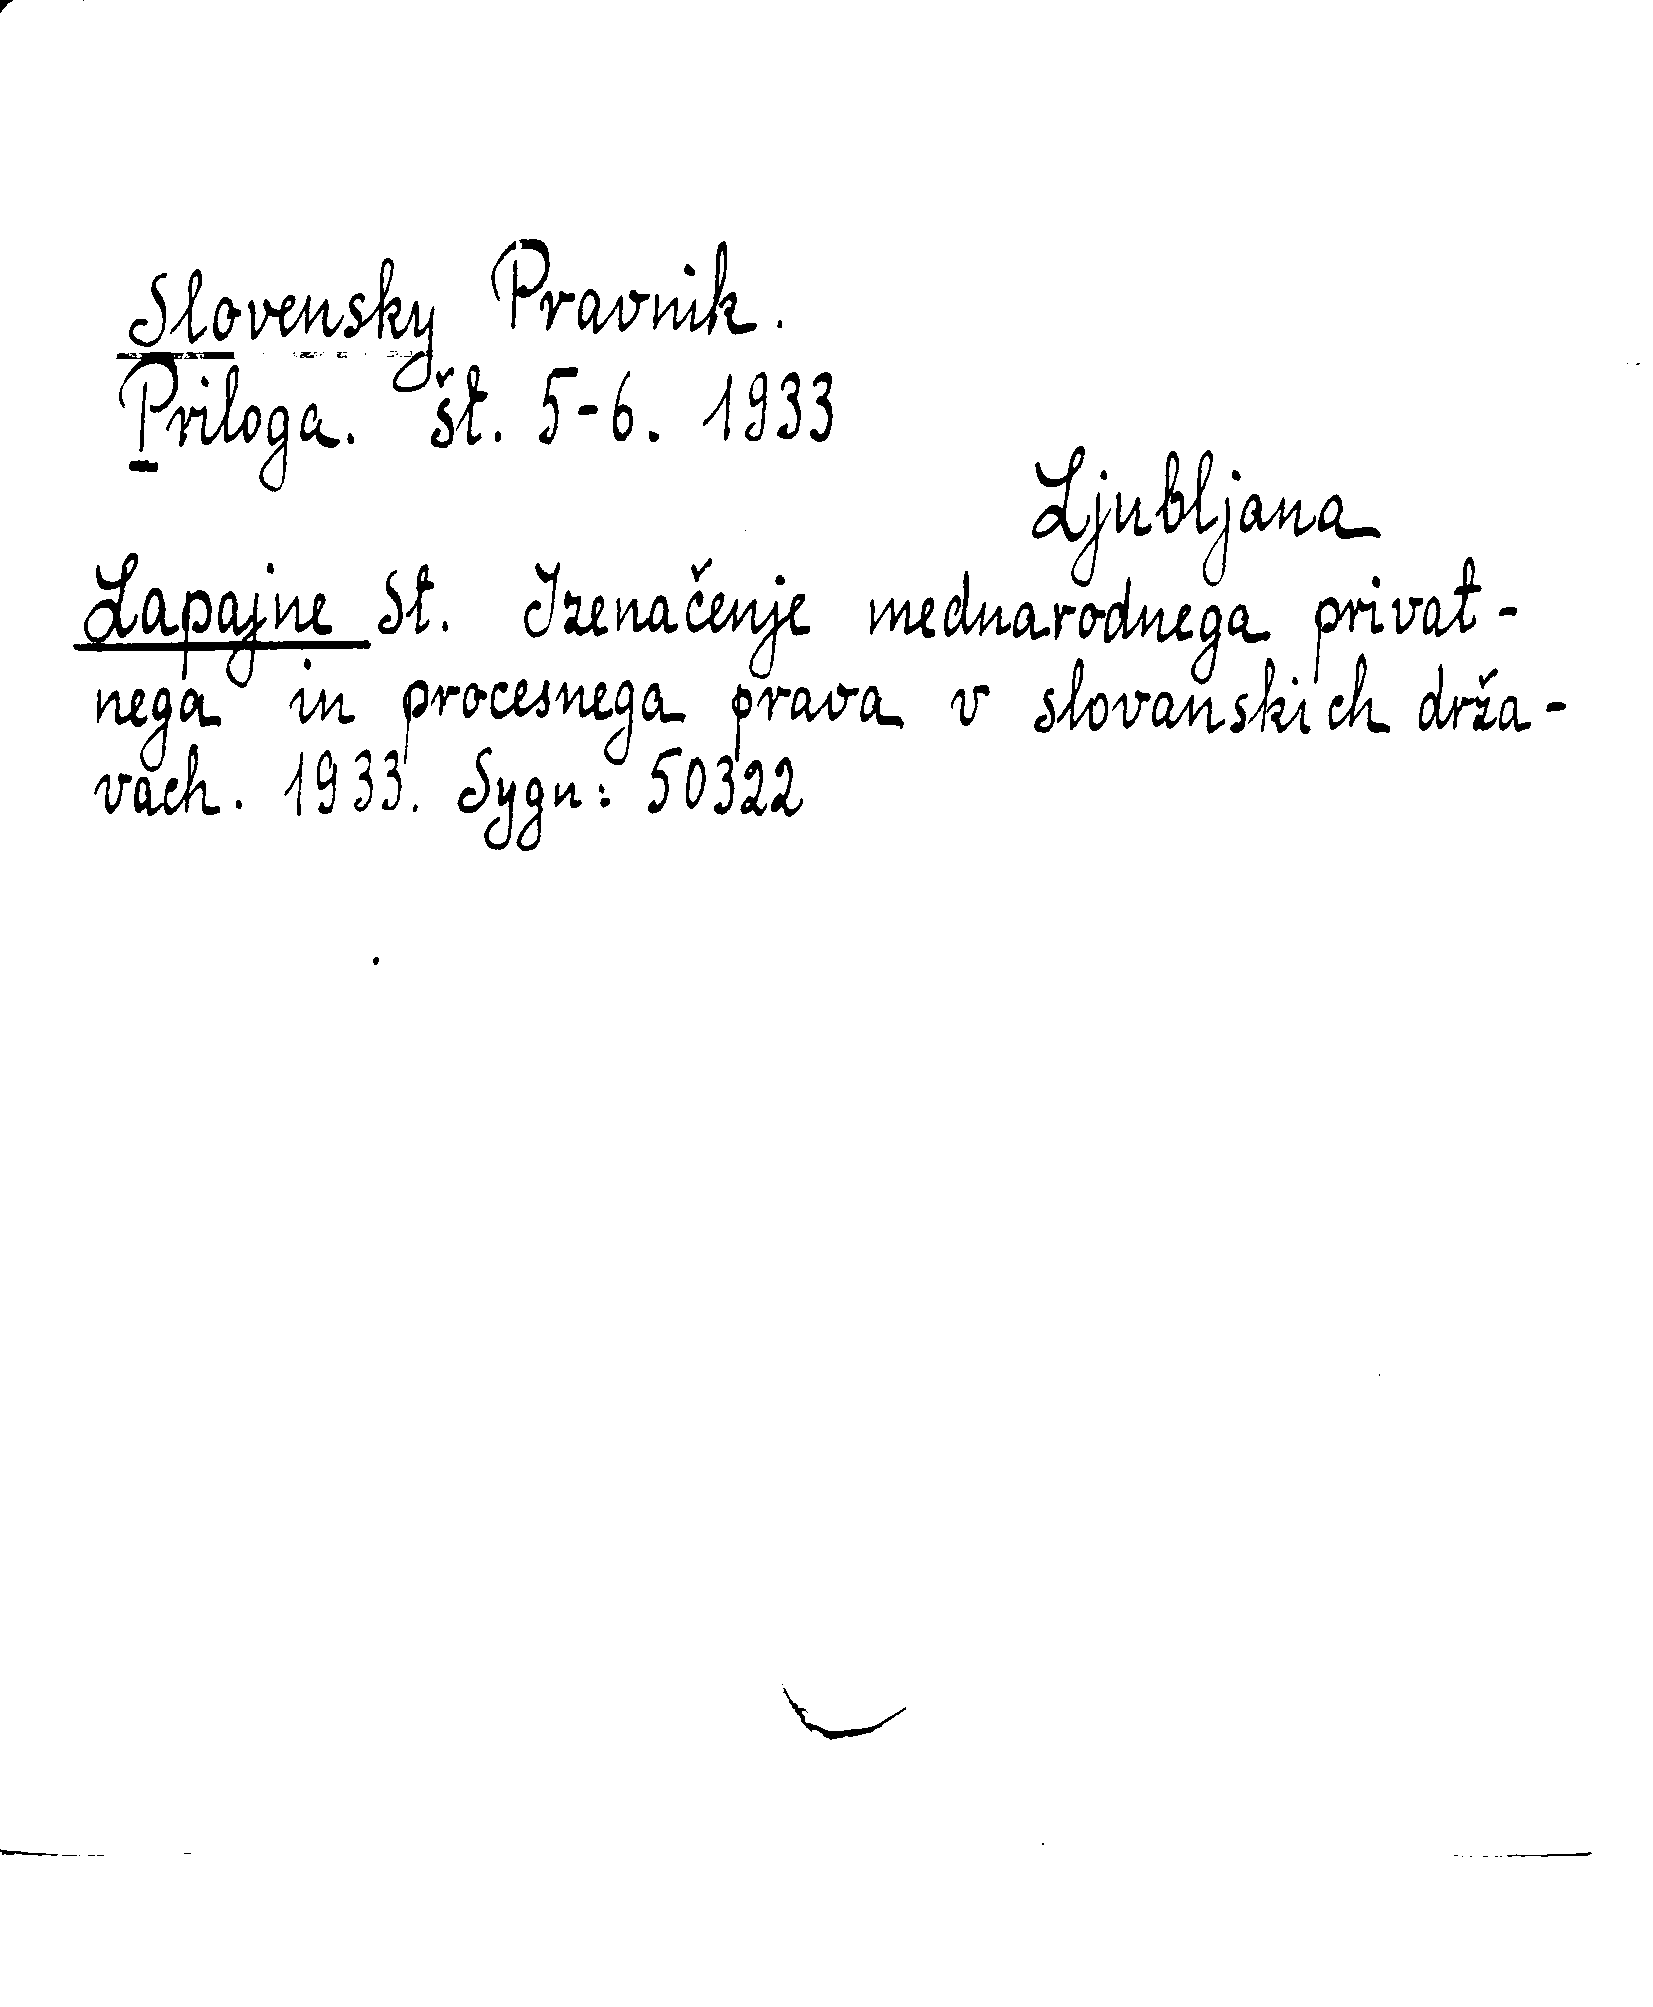 Slovensky Pravnik.
Priloga. št. 5-6. 1933
Ljubljana
Lapajne St. Izenačenje mednarodnega privat-
nega in procesnega prava v slovanskich drža-
vach. 1933. Sygn: 50322